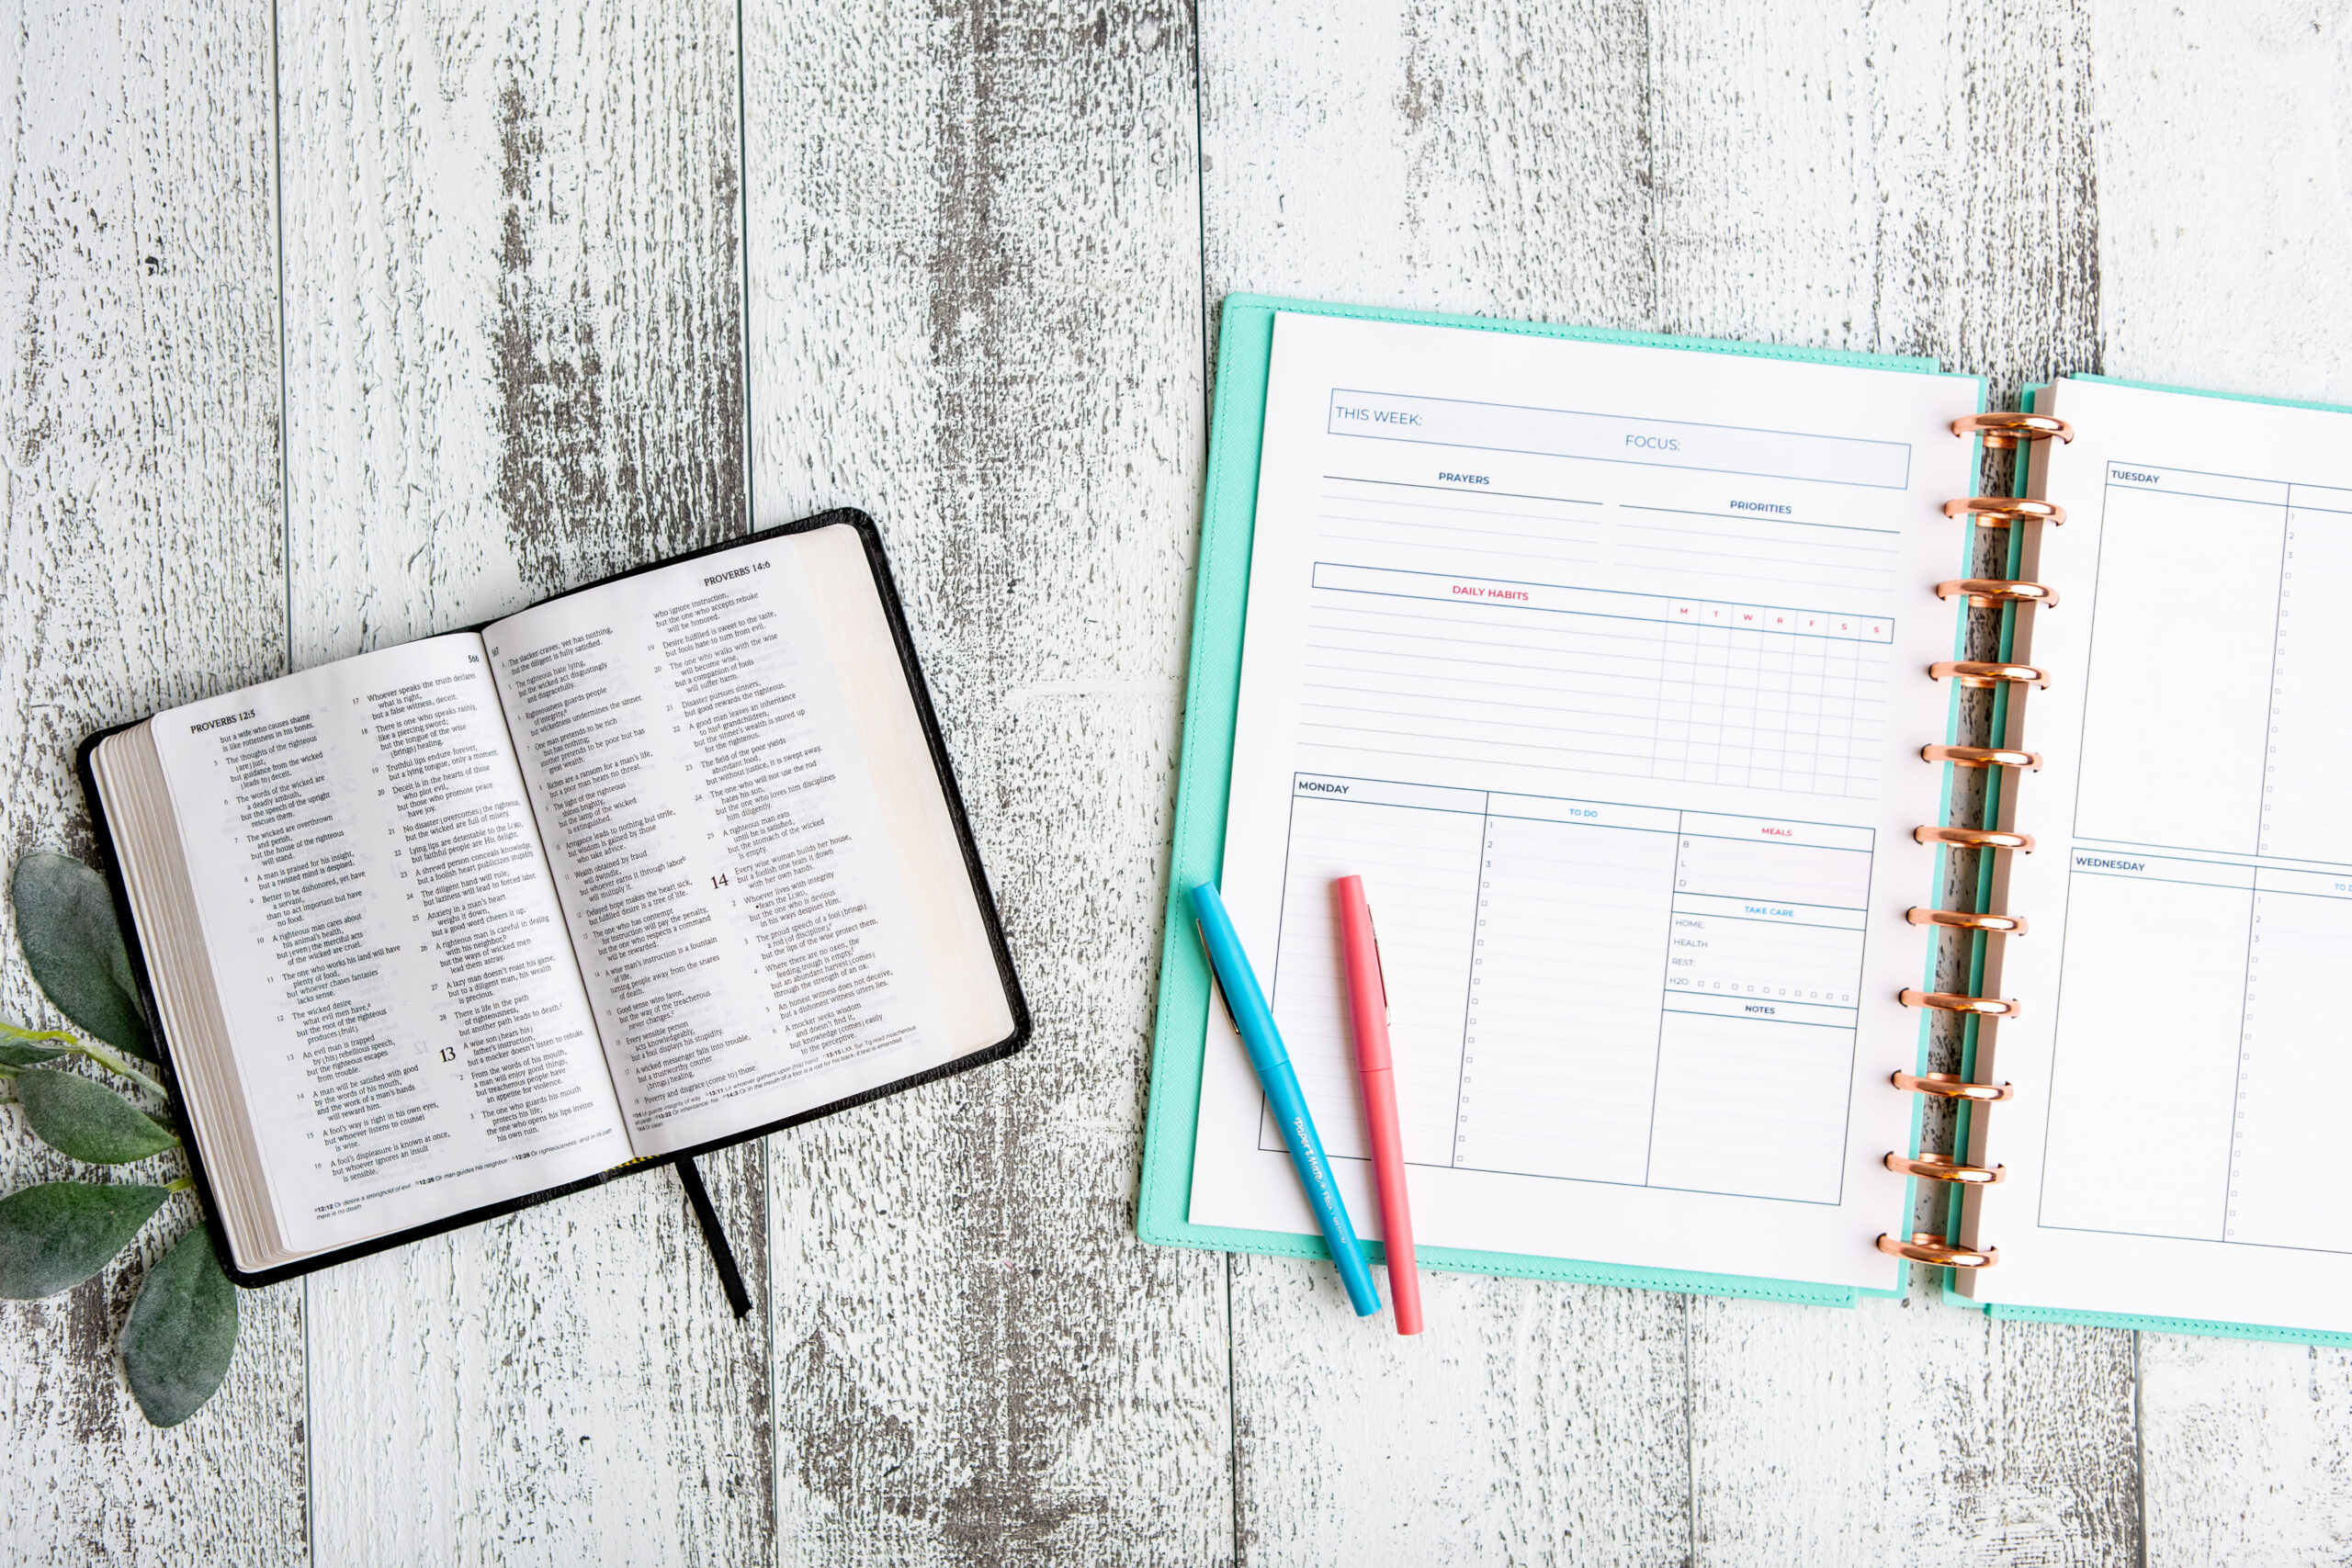 PROVERBS 12:5
but a wife who causes shame
is like rottenness in his bones.
5 The thoughts of the righteous
⌊are⌋ just,
but guidance from the wicked
⌊leads to⌋ deceit.
6 The words of the wicked are
a deadly ambush,
but the speech of the upright
rescues them.
7 The wicked are overthrown
and perish,
but the house of the righteous
will stand.
8 A man is praised for his insight,
but a twisted mind is despised.
9 Better to be dishonored, yet have
a servant,
than to act important but have
no food.
10 A righteous man cares about
his animal's health,
but ⌊even⌋ the merciful acts
of the wicked are cruel.
11 The one who works his land will have
plenty of food,
but whoever chases fantasies
lacks sense.
12 The wicked desire
what evil men have,a
but the root of the righteous
produces ⌊fruit⌋.
13 An evil man is trapped
by ⌊his⌋ rebellious speech,
but the righteous escapes
from trouble.
14 A man will be satisfied with good
by the words of his mouth,
and the work of a man's hands
will reward him.
15 A fool's way is right in his own eyes,
but whoever listens to counsel
is wise.
16 A fool's displeasure is known at once,
but whoever ignores an insult
is sensible.
566
17 Whoever speaks the truth declares
what is right,
but a false witness, deceit.
18 There is one who speaks rashly,
like a piercing sword;
but the tongue of the wise
⌊brings⌋ healing.
19 Truthful lips endure forever,
but a lying tongue, only a moment.
20 Deceit is in the hearts of those
who plot evil,
but those who promote peace
have joy.
21 No disaster ⌊overcomes⌋ the righteous,
but the wicked are full of misery.
22 Lying lips are detestable to the LORD,
but faithful people are His delight.
23 A shrewd person conceals knowledge,
but a foolish heart publicizes stupidity.
24 The diligent hand will rule,
but laziness will lead to forced labor.
25 Anxiety in a man's heart
weighs it down,
but a good word cheers it up.
26 A righteous man is careful in dealing
with his neighbor,b
but the ways of wicked men
lead them astray.
27 A lazy man doesn't roast his game,
but to a diligent man, his wealth
is precious.
28 There is life in the path
of righteousness,
but another path leads to death.c
13 A wise son ⌊hears his⌋
father's instruction,
but a mocker doesn't listen to rebuke.
2 From the words of his mouth,
a man will enjoy good things,
but treacherous people have
an appetite for violence.
3 The one who guards his mouth
protects his life;
the one who opens his lips invites
his own ruin.
a12:12 Or desire a stronghold of evil b12:26 Or man guides his neighbor c12:28 Or righteousness, and in its path
there is no death
The slacker craves, yet has nothing,
but the diligent is fully satisfied.
The righteous hate lying,
but the wicked act disgustingly
and disgracefully.
Righteousness guards people
of integrity,a
but wickedness undermines the sinner.
One man pretends to be rich
but has nothing;
another pretends to be poor but has
great wealth.
Riches are a ransom for a man's life,
but a poor man hears no threat.
The light of the righteous
shines brightly,
but the lamp of the wicked
is extinguished.
Arrogance leads to nothing but strife,
but wisdom is gained by those
who take advice.
Wealth obtained by fraud
will dwindle,
but whoever earns it through laborb
will multiply it.
Delayed hope makes the heart sick,
but fulfilled desire is a tree of life.
The one who has contempt
for instruction will pay the penalty,
but the one who respects a command
will be rewarded.
A wise man's instruction is a fountain
of life,
turning people away from the snares
of death.
Good sense wins favor,
but the way of the treacherous
never changes.c
Every sensible person
acts knowledgeably,
but a fool displays his stupidity.
A wicked messenger falls into trouble,
but a trustworthy courier
⌊brings⌋ healing.
Poverty and disgrace ⌊come to⌋ those
PROVERBS 14:6
who ignore instruction,
but the one who accepts rebuke
will be honored.
19 Desire fulfilled is sweet to the taste,
but fools hate to turn from evil.
20 The one who walks with the wise
will become wise,
but a companion of fools
will suffer harm.
21 Disaster pursues sinners,
but good rewards the righteous.
22 A good man leaves an inheritance
to his grandchildren,
but the sinner's wealth is stored up
for the righteous.
23 The field of the poor yields
abundant food,
but without justice, it is swept away.
24 The one who will not use the rod
hates his son,
but the one who loves him disciplines
him diligently.
25 A righteous man eats
until he is satisfied,
but the stomach of the wicked
is empty.
14 Every wise woman builds her house,
but a foolish one tears it down
with her own hands.
2 Whoever lives with integrity
fears the LORD,
but the one who is devious
in his ways despises Him.
3 The proud speech of a fool ⌊brings⌋
a rod ⌊of discipline⌋,
but the lips of the wise protect them.
4 Where there are no oxen, the
feeding trough is empty,
but an abundant harvest ⌊comes⌋
through the strength of an ox.
5 An honest witness does not deceive,
but a dishonest witness utters lies.
6 A mocker seeks wisdom
and doesn't find it,
but knowledge ⌊comes⌋ easily
to the perceptive.
THIS WEEK:
FOCUS:
PRAYERS
PRIORITIES
DAILY HABITS
M T W R F S S
MONDAY
TO DO
1
2
3
MEALS
B
L
D
TAKE CARE
HOME:
HEALTH
REST:
H2O:
NOTES
TUESDAY
1
2
3
WEDNESDAY
TO D
1
2
3